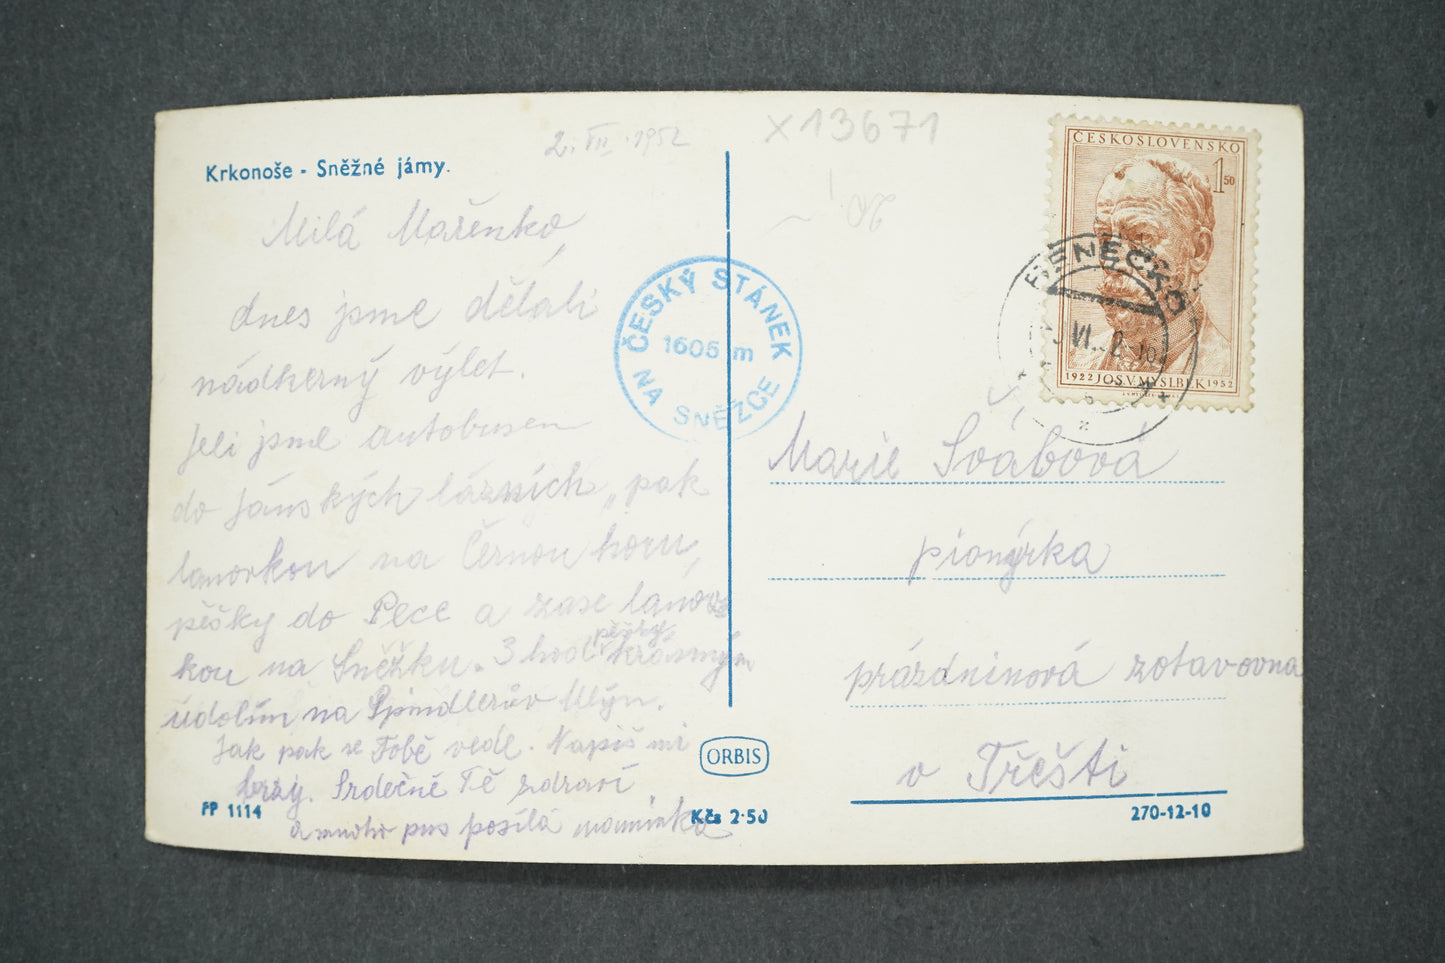 2. VII. 1952
x 13671
Krkonoše - Sněžné jámy.
Milá Mařenko,
dnes jsme dělali
nádherný výlet.
Jeli jsme autobusem
do Jánských lázních, pak
lanovkou na Černou horu,
pěšky do Pece a zase lanov
kou na Sněžku. 3 hod pěšky krásným
údolím na Špindlerův Mlýn.
Jak pak se Tobě vede. Napiš mi
brzy. Srdečně Tě zdraví
a mnoho pus posílá maminka
PP 1114
ČESKÝ STÁNEK
1605 m
NA SNĚŽCE
ORBIS
Kčs 2·50
ČESKOSLOVENSKO
1 50
1922 JOS. V. MYSLBEK 1952
BENECKO
Marie Švábová
pionýrka
prázdninová zotavovna
v Třešti
270-12-10